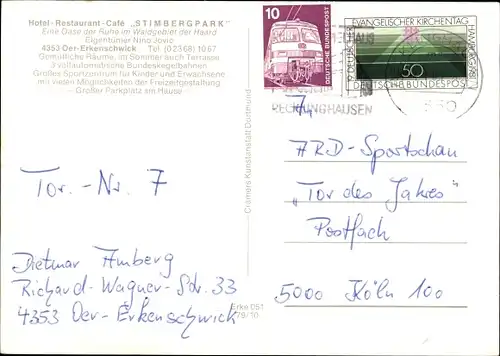 Hotel-Restaurant-Café „STIMBERGPARK"
Eine Oase der Ruhe im Waldgebiet der Haard
Eigentümer Nino Jovic
4353 Oer-Erkenschwick Tel (02368) 1067
Gemütliche Räume, im Sommer auch Terrasse
3 vollautomatische Bundeskegelbahnen
Großes Sportzentrum für Kinder und Erwachsene
mit vielen Möglichkeiten der Freizeitgestaltung
— Großer Parkplatz am Hause —
Tor.-Nr. 7
Dietmar Amberg
Richard-Wagner-Str. 33
4353 Oer-Erkenschwick
Cramers Kunstanstalt Dortmund
Erke 051
79/10
10
DEUTSCHE BUNDESPOST
EVANGELISCHER KIRCHENTAG
HAMBURG 1981
50
DEUTSCHE BUNDESPOST
RECKLINGHAUSEN
ARD-Sportschau
„Tor des Jahres"
Postfach
5000 Köln 100